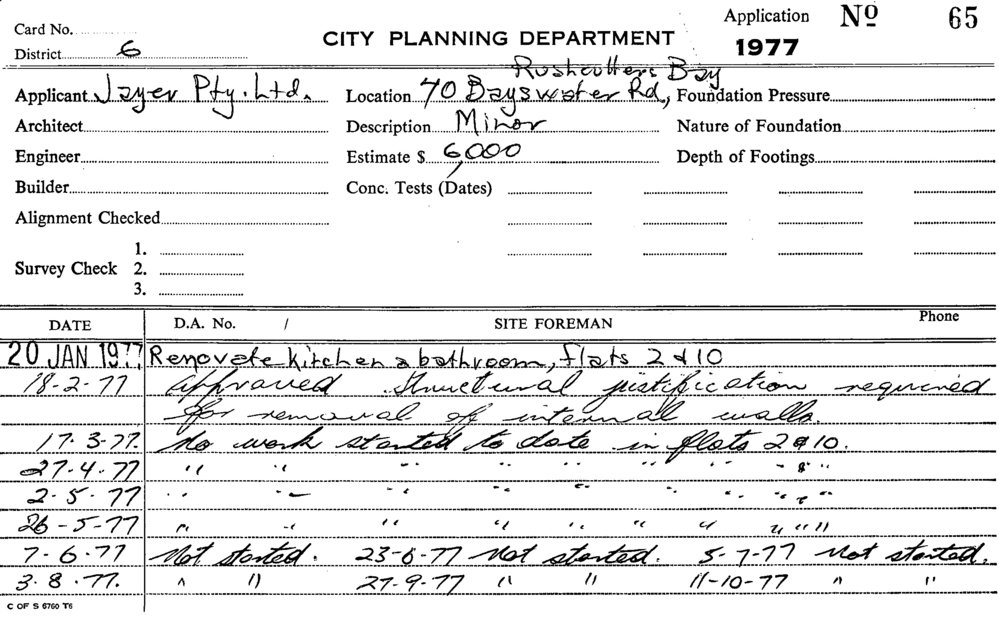 Card No.
District 6
CITY PLANNING DEPARTMENT
Application No 65
1977
Applicant Jayer Pty. Ltd.
Location 70 Bayswater Rd, Rushcutters Bay
Foundation Pressure
Architect
Description Minor
Nature of Foundation
Engineer
Estimate $ 6,000
Depth of Footings
Builder
Conc. Tests (Dates)
Alignment Checked
Survey Check 1.
2.
3.
DATE D.A. No. / SITE FOREMAN Phone
20 JAN 1977 Renovate kitchen & bathroom, flats 2 & 10
18-2-77 Approved Structural justification required
for removal of internal walls.
17.3.77. No work started to date in flats 2 & 10.
27.4.77 " " " " " " " " "
2.5.77 " " " " " " " " "
26-5-77 " " " " " " " " "
7-6-77 Not started. 23-6-77 Not started. 5-7-77 Not started.
3.8.77. " " 27-9-77 " " 11-10-77 " "
C OF S 6760 T6